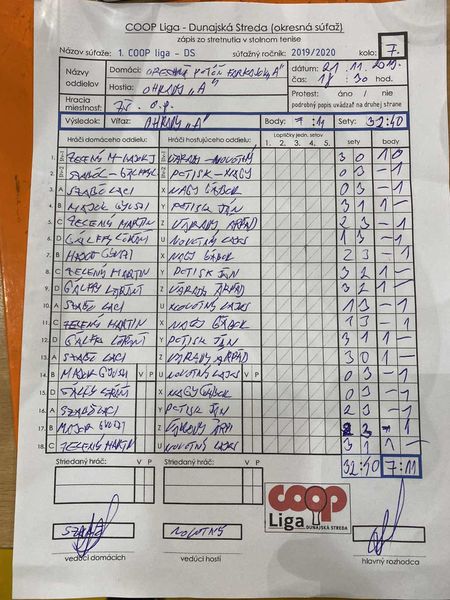 COOP Liga - Dunajská Streda (okresná súťaž)
zápis zo stretnutia v stolnom tenise
Názov súťaže: 1. COOP liga - DS súťažný ročník: 2019/2020 kolo: 7.
Názvy oddielov
Domáci: "A"
dátum: 21. 11. 2019.
Hostia: OHRADY "A"
čas: 18 : 30 hod.
Hracia miestnosť:
Protest: áno / nie
podrobný popis uvádzať na druhej strane
Výsledok: Víťaz: OHRADY "A" Body: 7:11 Sety: 32:40
Hráči domáceho oddielu Hráči hosťujúceho oddielu Loptičky jedn. setov sety: body:
1. 2. 3. 4. 5.
1. ZELENÝ M - MAJOR J VÁRADY - NOVOTNÝ 3 0 1 0
2. SZABÓ - GÁLFFY PETISK - NAGY 0 3 - 1
3. A SZABÓ LACI X NAGY GÁBOR 0 3 - 1
4. B MAJOR GYUSZI Y PETISK JÁN 3 1 1 -
5. C ZELENÝ MARTIN Z VÁRADY ÁRPÁD 2 3 - 1
6. D GÁLFFY LÓRÁNT U NOVOTNÝ LAJOS 1 3 - 1
7. B MAJOR GYUSZI X NAGY GÁBOR 2 3 - 1
8. C ZELENÝ MARTIN Y PETISK JÁN 3 2 1 -
9. D GÁLFFY LÓRÁNT Z VÁRADY ÁRPÁD 3 2 1 -
10. A SZABÓ LACI U NOVOTNÝ LAJOS 1 3 - 1
11. C ZELENÝ MARTIN X NAGY GÁBOR 1 3 - 1
12. D GÁLFFY LÓRÁNT Y PETISK JÁN 3 1 1 -
13. A SZABÓ LACI Z VÁRADY ÁRPÁD 3 0 1 -
14. B MAJOR GYUSZI V P U NOVOTNÝ LAJOS V P 0 3 - 1
15. D GÁLFFY LÓRÁNT X NAGY GÁBOR 0 3 - 1
16. A SZABÓ LACI Y PETISK JÁN 2 3 - 1
17. B MAJOR GYUSZI Z VÁRADY ÁRPÁD - 1
18. C ZELENÝ MARTIN U NOVOTNÝ LAJOS 3 1 1 -
Striedaný hráč: V P Striedaný hráč: V P 32:40 7:11
COOP
Liga
DUNAJSKÁ STREDA
SZABÓ NOVOTNÝ
vedúci domácich vedúci hostí hlavný rozhodca